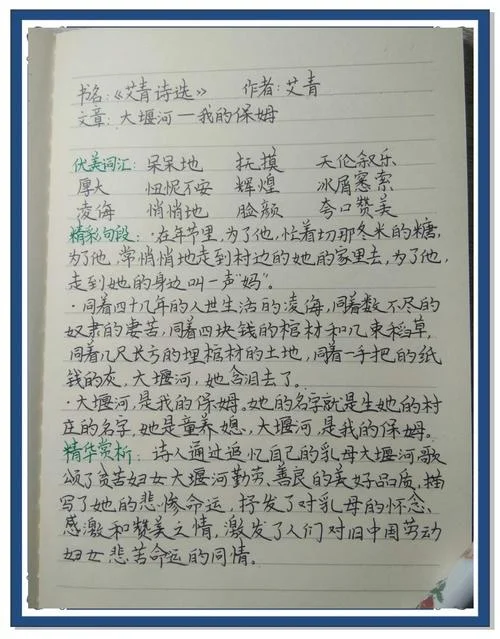 书名:《艾青诗选》 作者:艾青
文章:大堰河一我的保姆
优美词汇: 呆呆地 抚摸 天伦叙乐
厚大 忸怩不安 辉煌 冰屑悉索
凌侮 悄悄地 脸颜 夸口赞美
精彩句段:·在年节里,为了他,忙着切那冬米的糖,
为了他,常悄悄地走到村边的她的家里去,为了他,
走到她的身边叫一声“妈”。
·同着四十几年的人世生活的凌侮,同着数不尽的
奴隶的凄苦,同着四块钱的棺材和几束稻草,
同着几尺长方的埋棺材的土地,同着一手把的纸
钱的灰,大堰河,她含泪去了。
·大堰河,是我的保姆。她的名字就是生她的村
庄的名字,她是童养媳,大堰河,是我的保姆。
精华赏析:诗人通过追忆自己的乳母大堰河,歌
颂了贫苦妇女大堰河勤劳、善良的美好品质,描
写了她的悲惨命运,抒发了对乳母的怀念、
感激和赞美之情,激发了人们对旧中国劳动
妇女悲苦命运的同情。